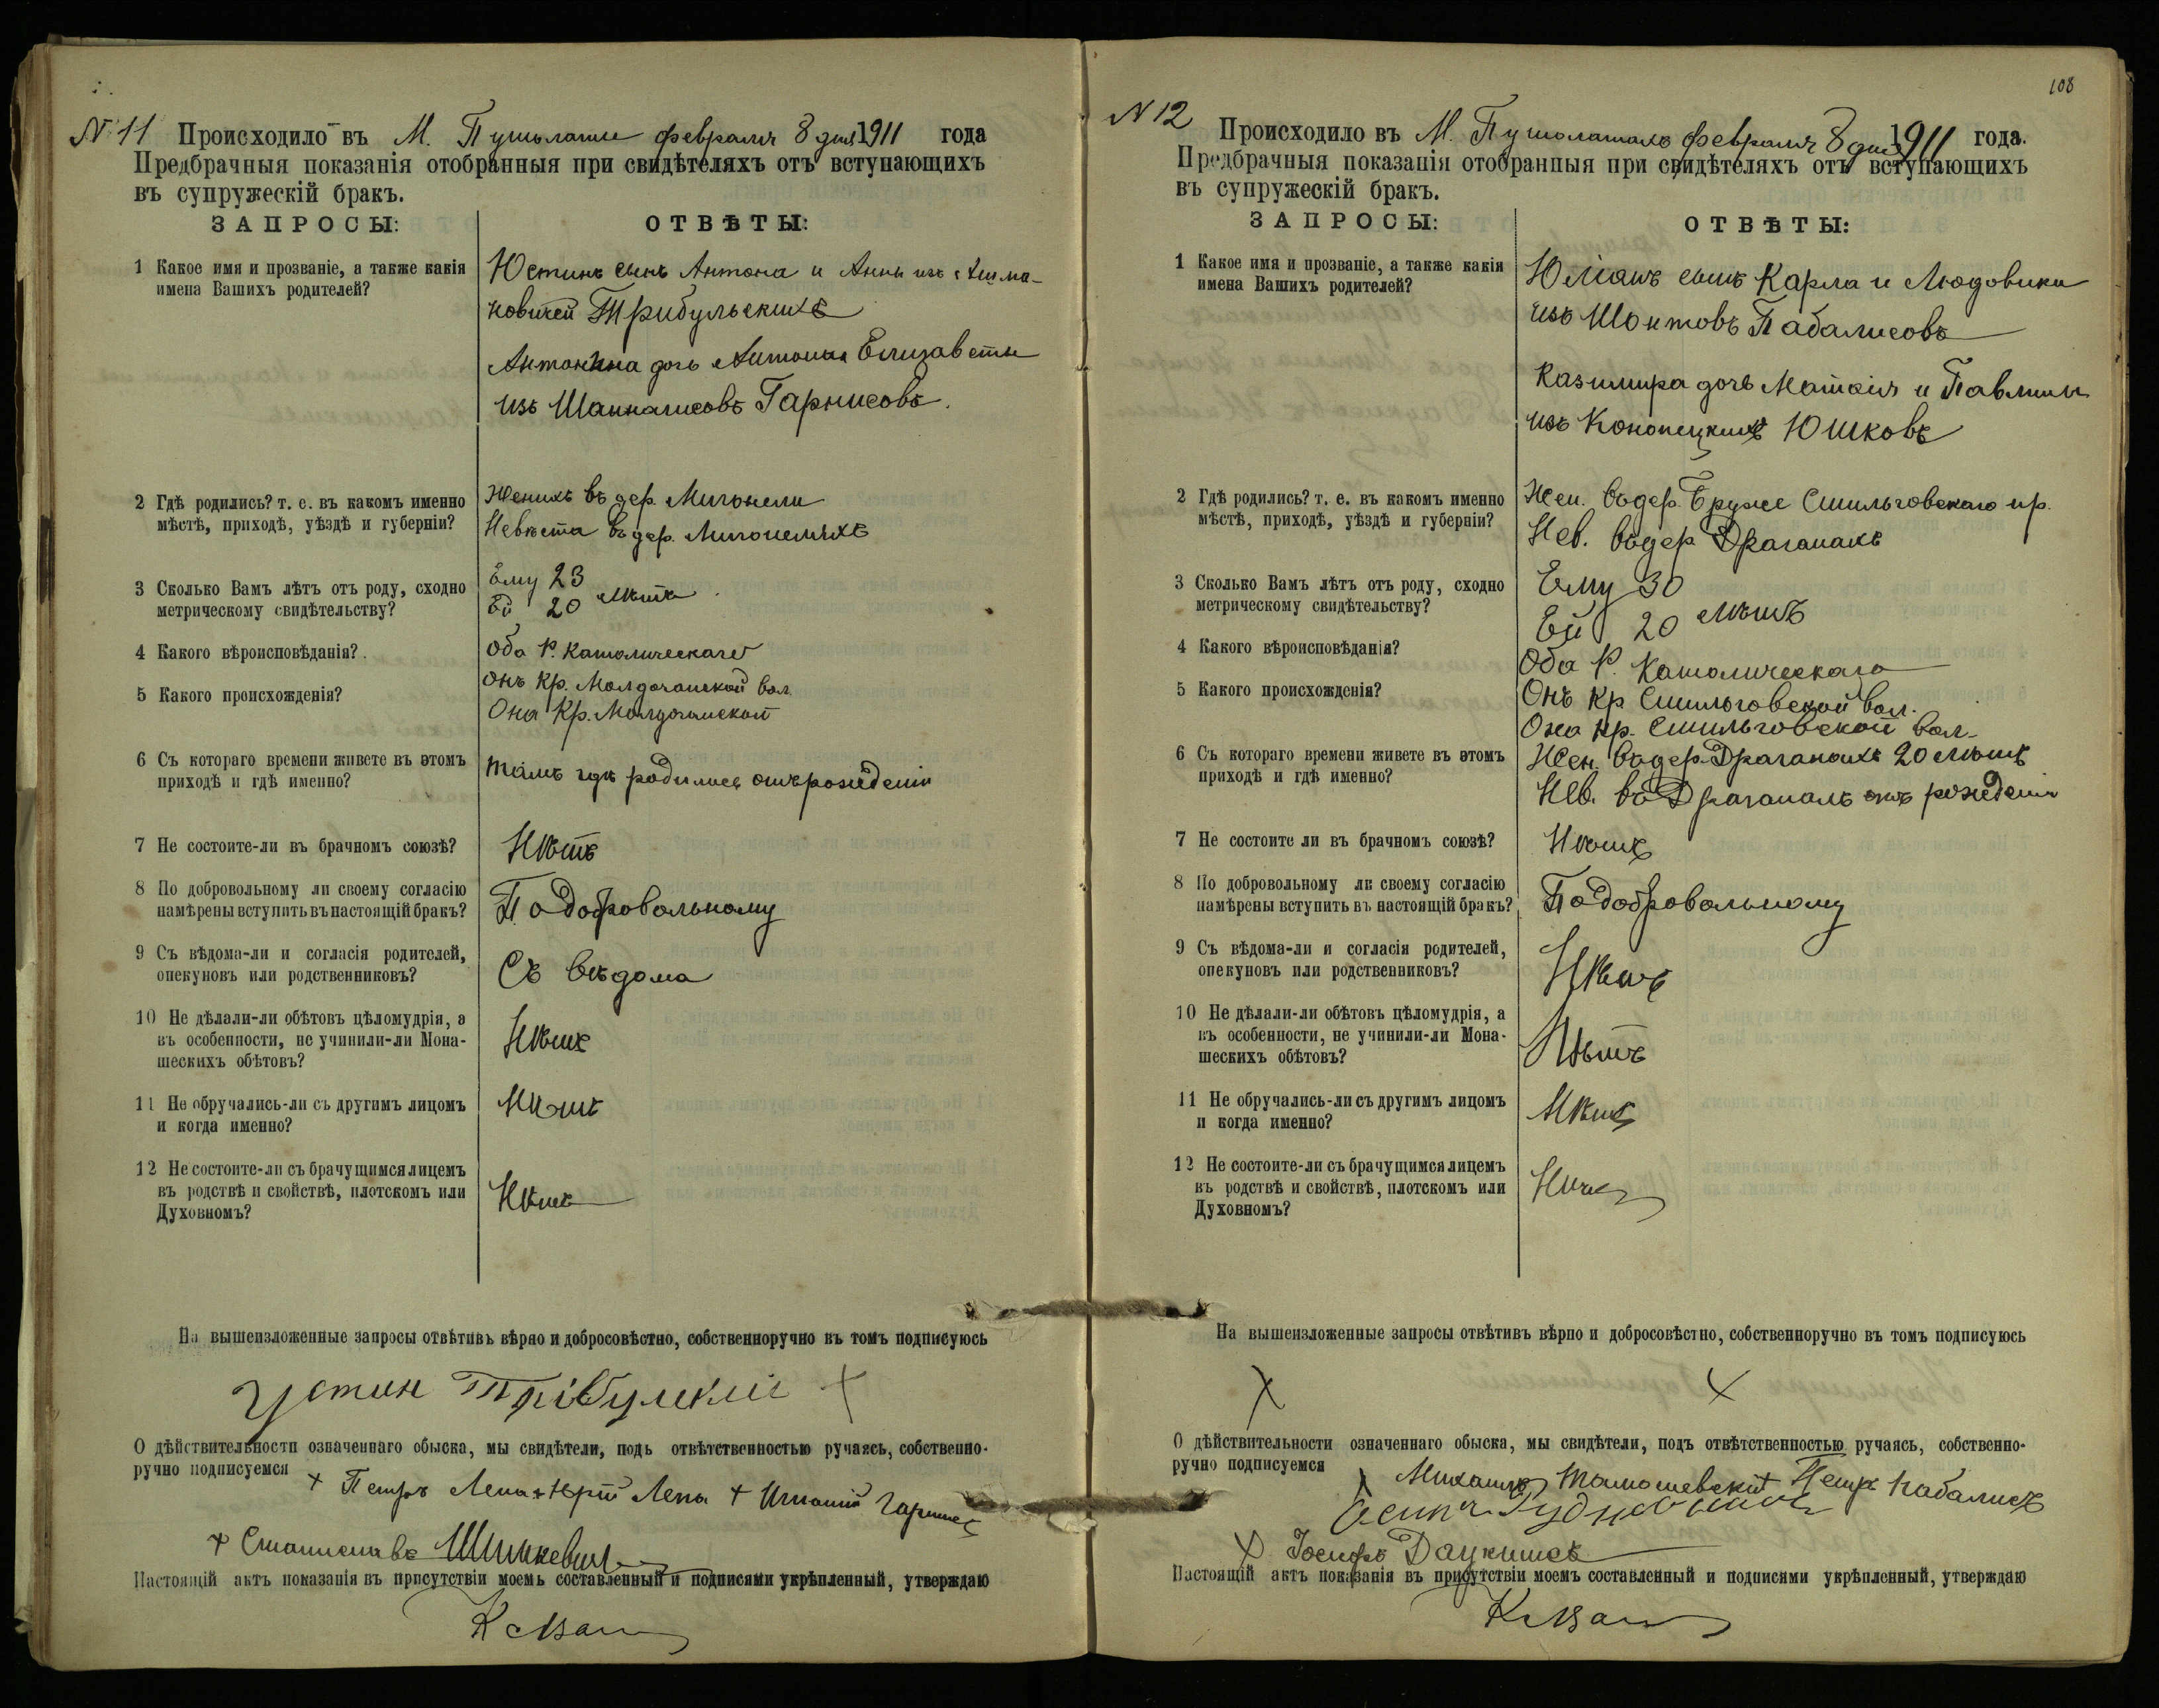 108
№ 11 Происходило въ М. Пушолаты февраля 8 дня 1911 года
Предбрачныя показанія отобранныя при свидѣтеляхъ отъ вступающихъ
въ супружескій бракъ.
ЗАПРОСЫ:
ОТВѢТЫ:
1 Какое имя и прозваніе, а также какія
имена Вашихъ родителей?
Юстинъ сынъ Антона и Анны изъ
новичей Трибульскихъ
Антонина дочь Антона Елизаветы
изъ Гарнисовъ.
2 Гдѣ родились? т. е. въ какомъ именно
мѣстѣ, приходѣ, уѣздѣ и губерніи?
Женихъ въ дер.
Невѣста въ дер.
3 Сколько Вамъ лѣтъ отъ роду, сходно
метрическому свидѣтельству?
Ему 23
Ей 20 лѣтъ
4 Какого вѣроисповѣданія?
Оба Р. Католическаго
5 Какого происхожденія?
Онъ Кр. вол.
Она Кр.
6 Съ котораго времени живете въ этомъ
приходѣ и гдѣ именно?
Тамъ гдѣ родились отъ рожденія
7 Не состоите-ли въ брачномъ союзѣ?
Нѣтъ
8 По добровольному ли своему согласію
намѣрены вступить въ настоящій бракъ?
По добровольному
9 Съ вѣдома-ли и согласія родителей,
опекуновъ или родственниковъ?
Съ вѣдома
10 Не дѣлали-ли обѣтовъ цѣломудрія, а
въ особенности, не учинили-ли Мона-
шескихъ обѣтовъ?
Нѣтъ
11 Не обручались-ли съ другимъ лицомъ
и когда именно?
Нѣтъ
12 Не состоите-ли съ брачущимся лицемъ
въ родствѣ и свойствѣ, плотскомъ или
Духовномъ?
Нѣтъ
На вышеизложенные запросы отвѣтивъ вѣрно и добросовѣстно, собственноручно въ томъ подписуюсь
Устин Трібулскій +
О дѣйствительности означеннаго обыска, мы свидѣтели, подъ отвѣтственностью ручаясь, собственно-
ручно подписуемся
+ Петръ Лепа + Юрій Лепа + Игнатій Гарнисъ
+ Станиславъ Шимкевичъ
Настоящій актъ показанія въ присутствіи моемъ составленный и подписями укрѣпленный, утверждаю
N 12 Происходило въ М. февраля 8 дня 1911 года.
Предбрачныя показанія отобранныя при свидѣтеляхъ отъ вступающихъ
въ супружескій бракъ.
ЗАПРОСЫ:
ОТВѢТЫ:
1 Какое имя и прозваніе, а также какія
имена Вашихъ родителей?
Юліанъ сынъ Карла и Людовики
изъ Шонтовъ Пабалисовъ
Казимира дочь Матвія и Павлины
изъ Конопецкихъ Юшковъ
2 Гдѣ родились? т. е. въ какомъ именно
мѣстѣ, приходѣ, уѣздѣ и губерніи?
Жен. въ дер. Смильговскаго пр.
Нев. въ дер
3 Сколько Вамъ лѣтъ отъ роду, сходно
метрическому свидѣтельству?
Ему 30
Ей 20 лѣтъ
4 Какого вѣроисповѣданія?
Оба Р. Католическаго
5 Какого происхожденія?
Онъ Кр Смильговской вол.
Она кр. Смильговской вол.
6 Съ котораго времени живете въ этомъ
приходѣ и гдѣ именно?
Жен. въ дер. 20 лѣтъ
Нев. въ отъ рожденія
7 Не состоите ли въ брачномъ союзѣ?
Нѣтъ
8 По добровольному ли своему согласію
намѣрены вступить въ настоящій бракъ?
По добровольному
9 Съ вѣдома-ли и согласія родителей,
опекуновъ или родственниковъ?
Нѣтъ
10 Не дѣлали-ли обѣтовъ цѣломудрія, а
въ особенности, не учинили-ли Мона-
шескихъ обѣтовъ?
Нѣтъ
11 Не обручались-ли съ другимъ лицомъ
и когда именно?
Нѣтъ
12 Не состоите-ли съ брачущимся лицемъ
въ родствѣ и свойствѣ, плотскомъ или
Духовномъ?
Нѣтъ
На вышеизложенные запросы отвѣтивъ вѣрно и добросовѣстно, собственноручно въ томъ подписуюсь
X X
О дѣйствительности означеннаго обыска, мы свидѣтели, подъ отвѣтственностью ручаясь, собственно-
ручно подписуемся
Михаилъ Томашевскій + Петръ Пабалисъ
X Іосифъ Даукшисъ
Настоящій актъ показанія въ присутствіи моемъ составленный и подписями укрѣпленный, утверждаю